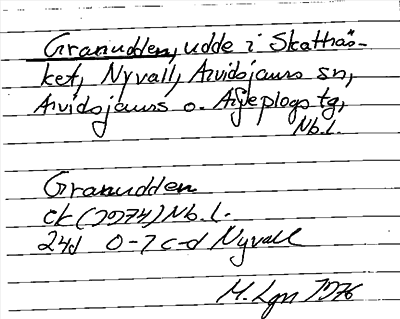 Granudden, udde i Skatträs-
ket, Nyvall, Arvidsjaurs sn,
Arvidsjaurs o. Arjeplogs tg,
Nb.l.
Granudden
ek (1974) Nb.l.
24d 0-1 c-d Nyvall
M. Lgn 1976